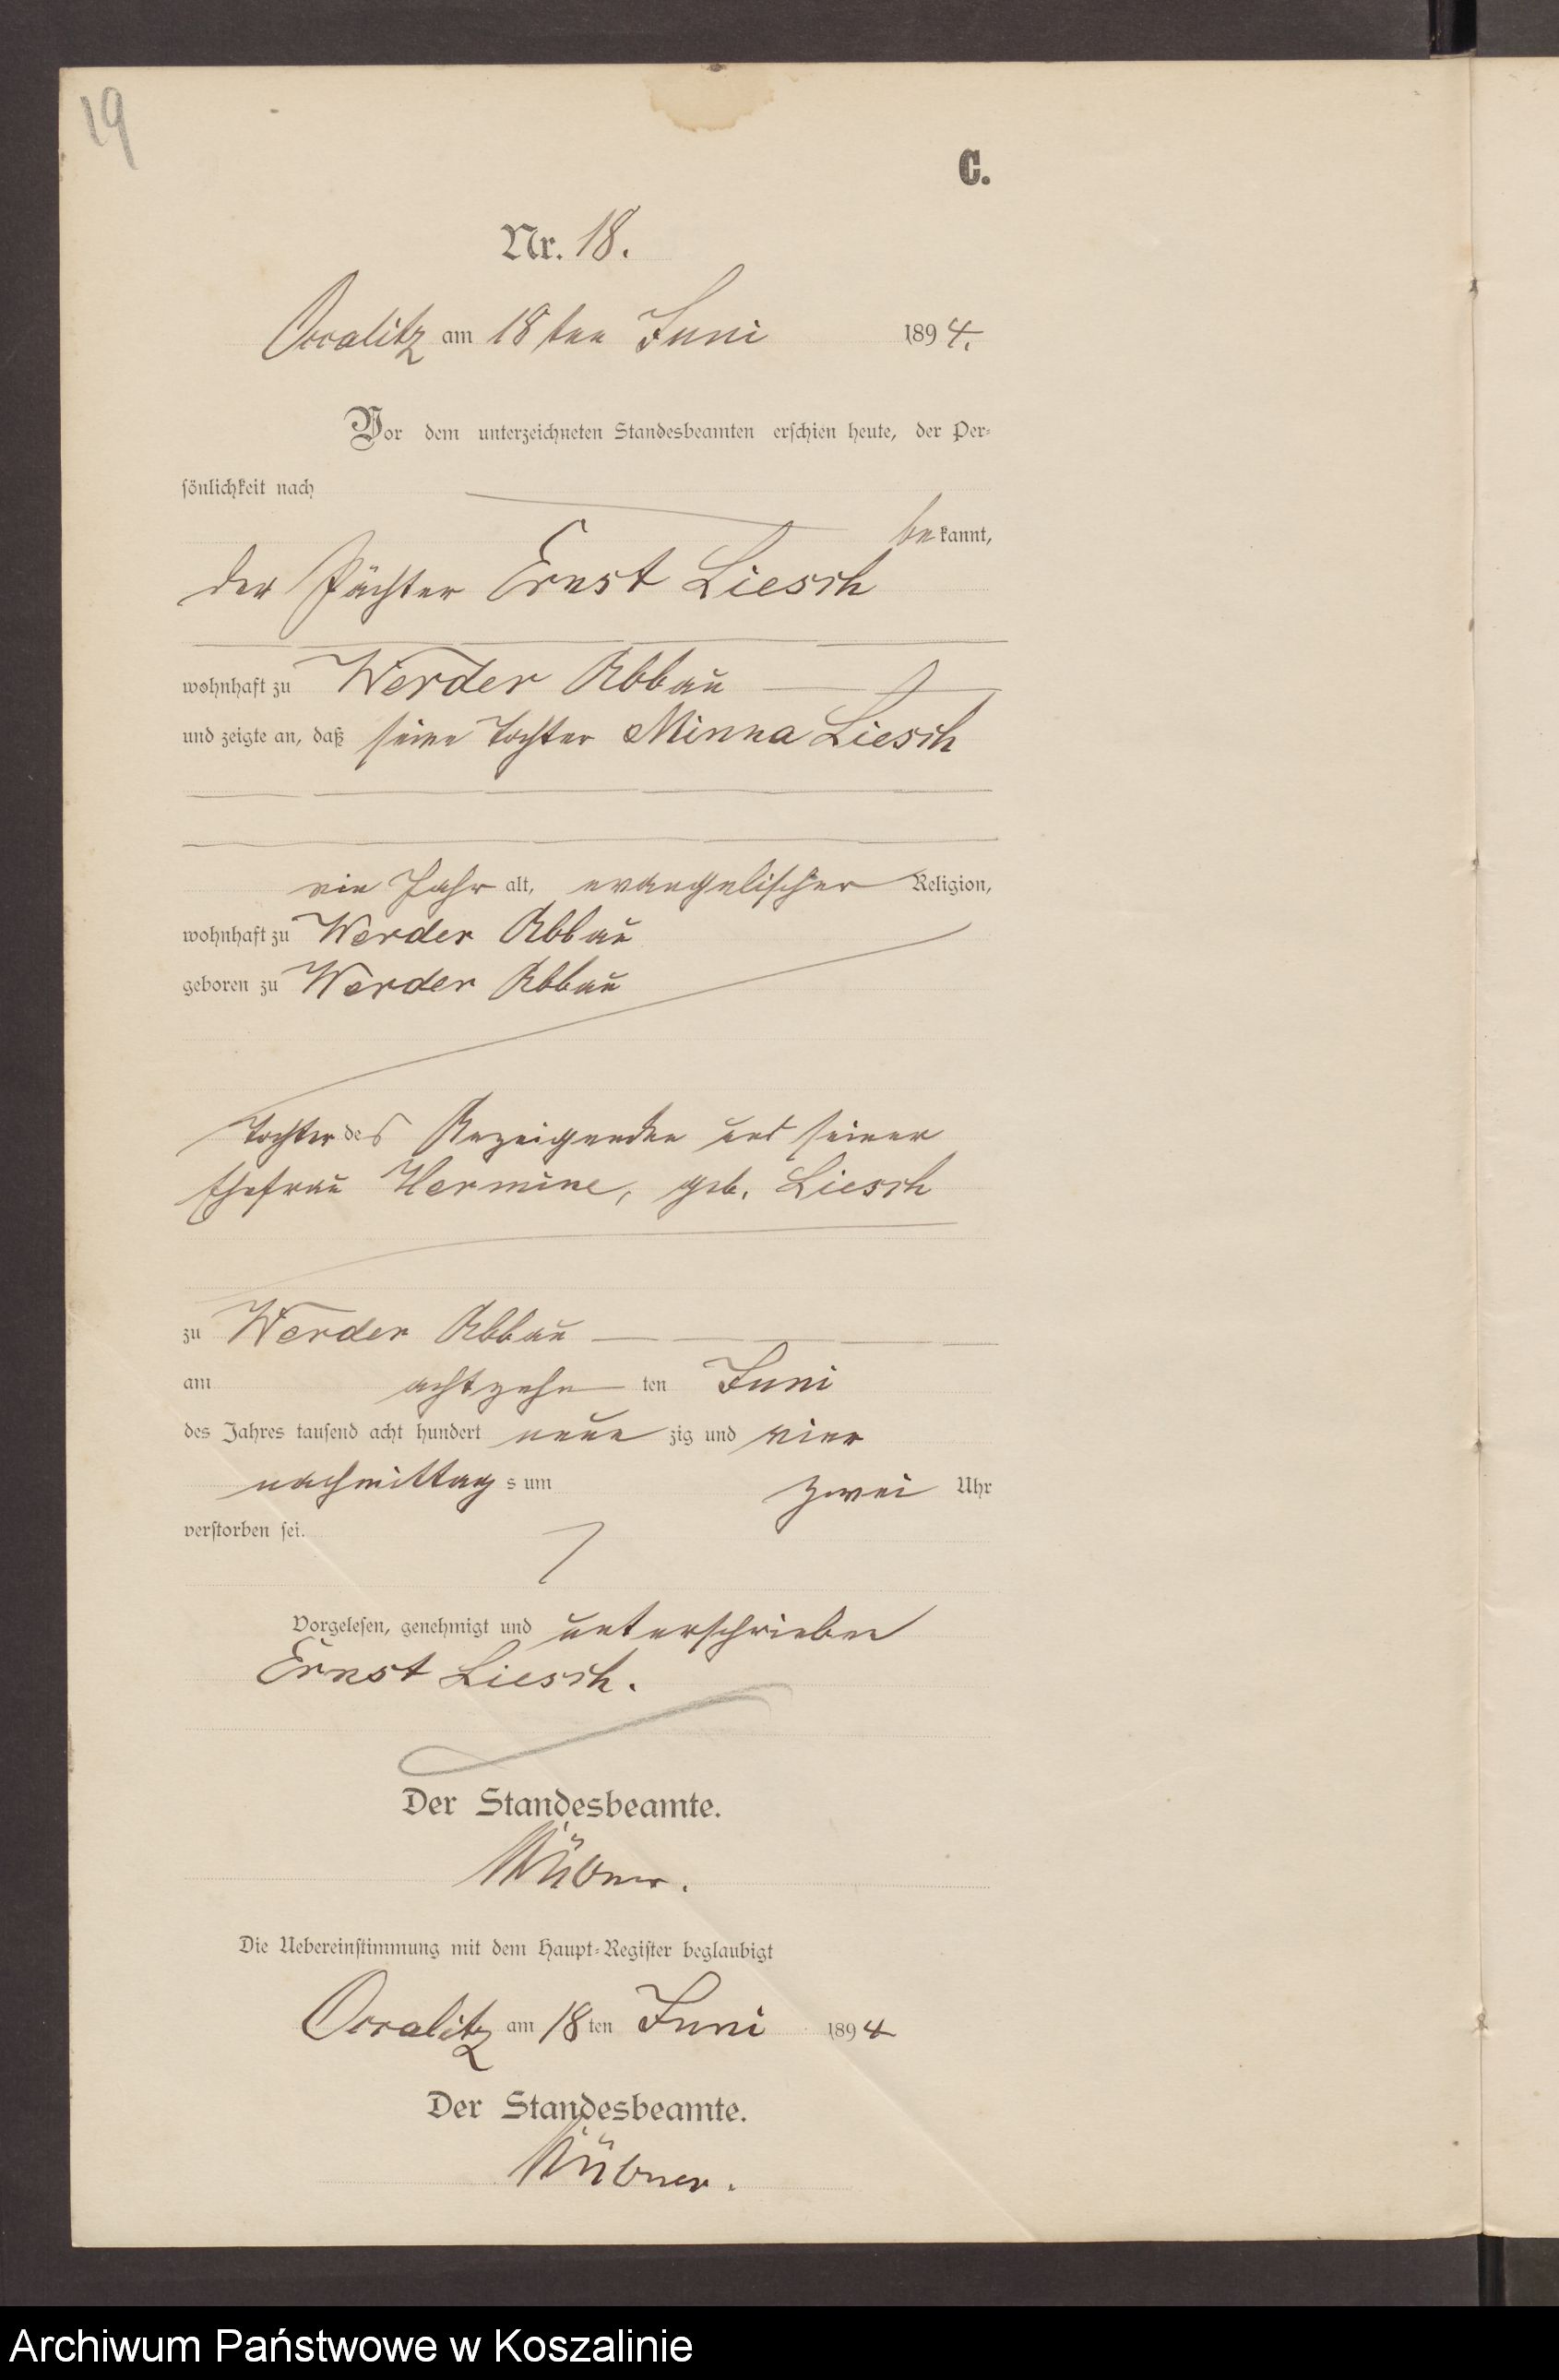 19
C.
Nr. 18.
Occalitz am 18ten Juni 1894.
Vor dem unterzeichneten Standesbeamten erschien heute, der Per-
sönlichkeit nach
bekannt,
der Pächter Ernst Liesch
wohnhaft zu Werder Abbau
und zeigte an, daß seine Tochter Minna Liesch
ein Jahr alt, evangelischer Religion,
wohnhaft zu Werder Abbau
geboren zu Werder Abbau
Tochter des Anzeigenden und seiner
Ehefrau Hermine, geb. Liesch
zu Werder Abbau
am achtzehn ten Juni
des Jahres tausend acht hundert neun zig und vier
nachmittag s um zwei Uhr
verstorben sei.
Vorgelesen, genehmigt und unterschrieben
Ernst Liesch.
Der Standesbeamte.
Die Uebereinstimmung mit dem Haupt-Register beglaubigt
Occalitz am 18ten Juni 1894
Der Standesbeamte.
Archiwum Państwowe w Koszalinie